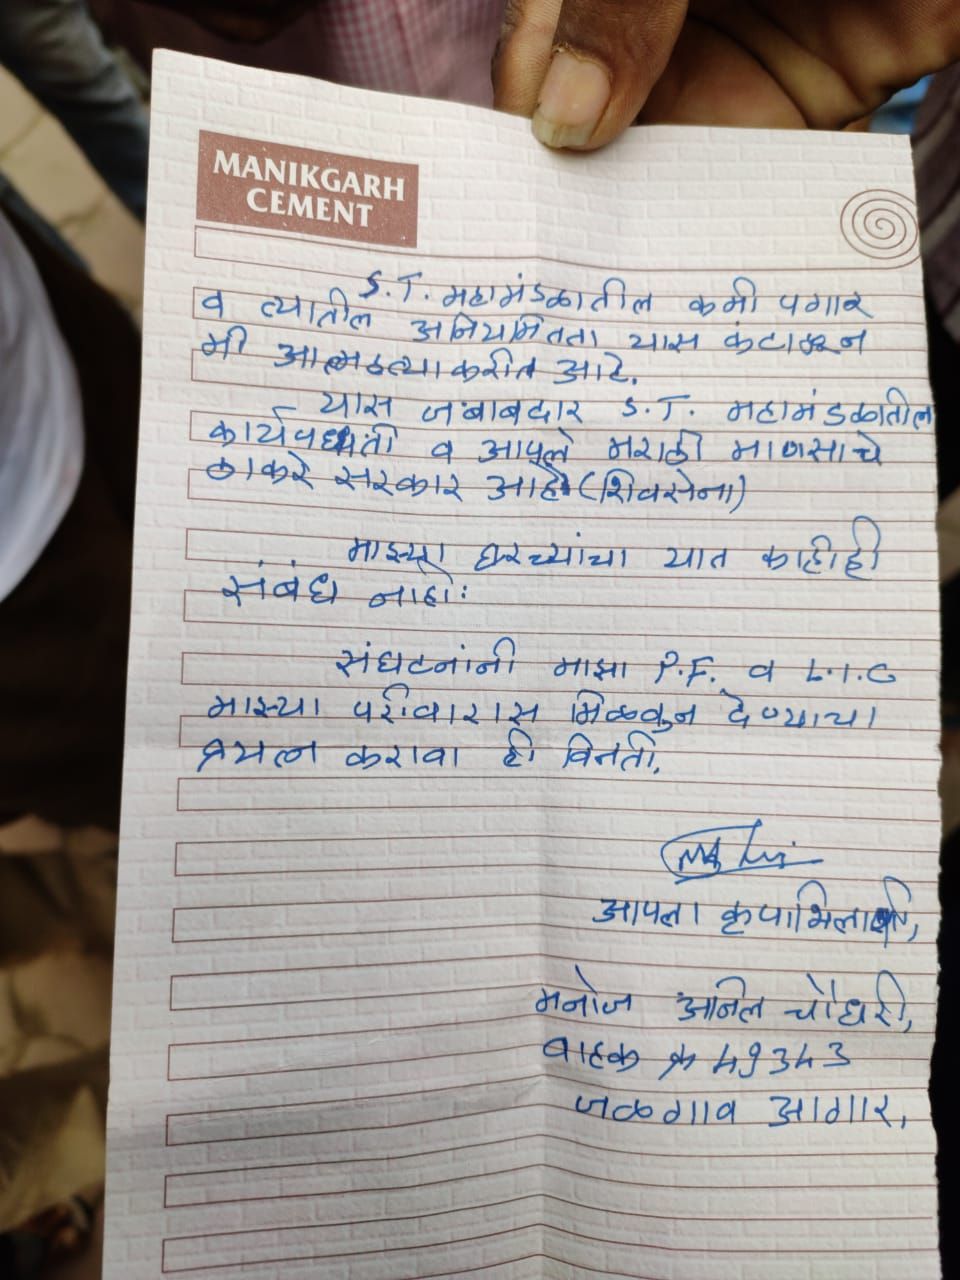 MANIKGARH
CEMENT
S.T. महामंडळातील कमी पगार
व त्यातील अनियमितता यास कंटाळून
मी आत्महत्या करीत आहे.
यास जबाबदार S.T. महामंडळातील
कार्यपध्दती व आपले मराठी माणसाचे
ठाकरे सरकार आहे (शिवसेना)
माझ्या घरच्यांचा यात काहीही
संबंध नाही.
संघटनांनी माझा P.F. व L.I.C
माझ्या परिवारास मिळवुन देण्याचा
प्रयत्न करावा ही विनंती.
आपला कृपाभिलाषी,
मनोज अनिल चौधरी,
वाहक क्र 49343
जळगाव आगार,